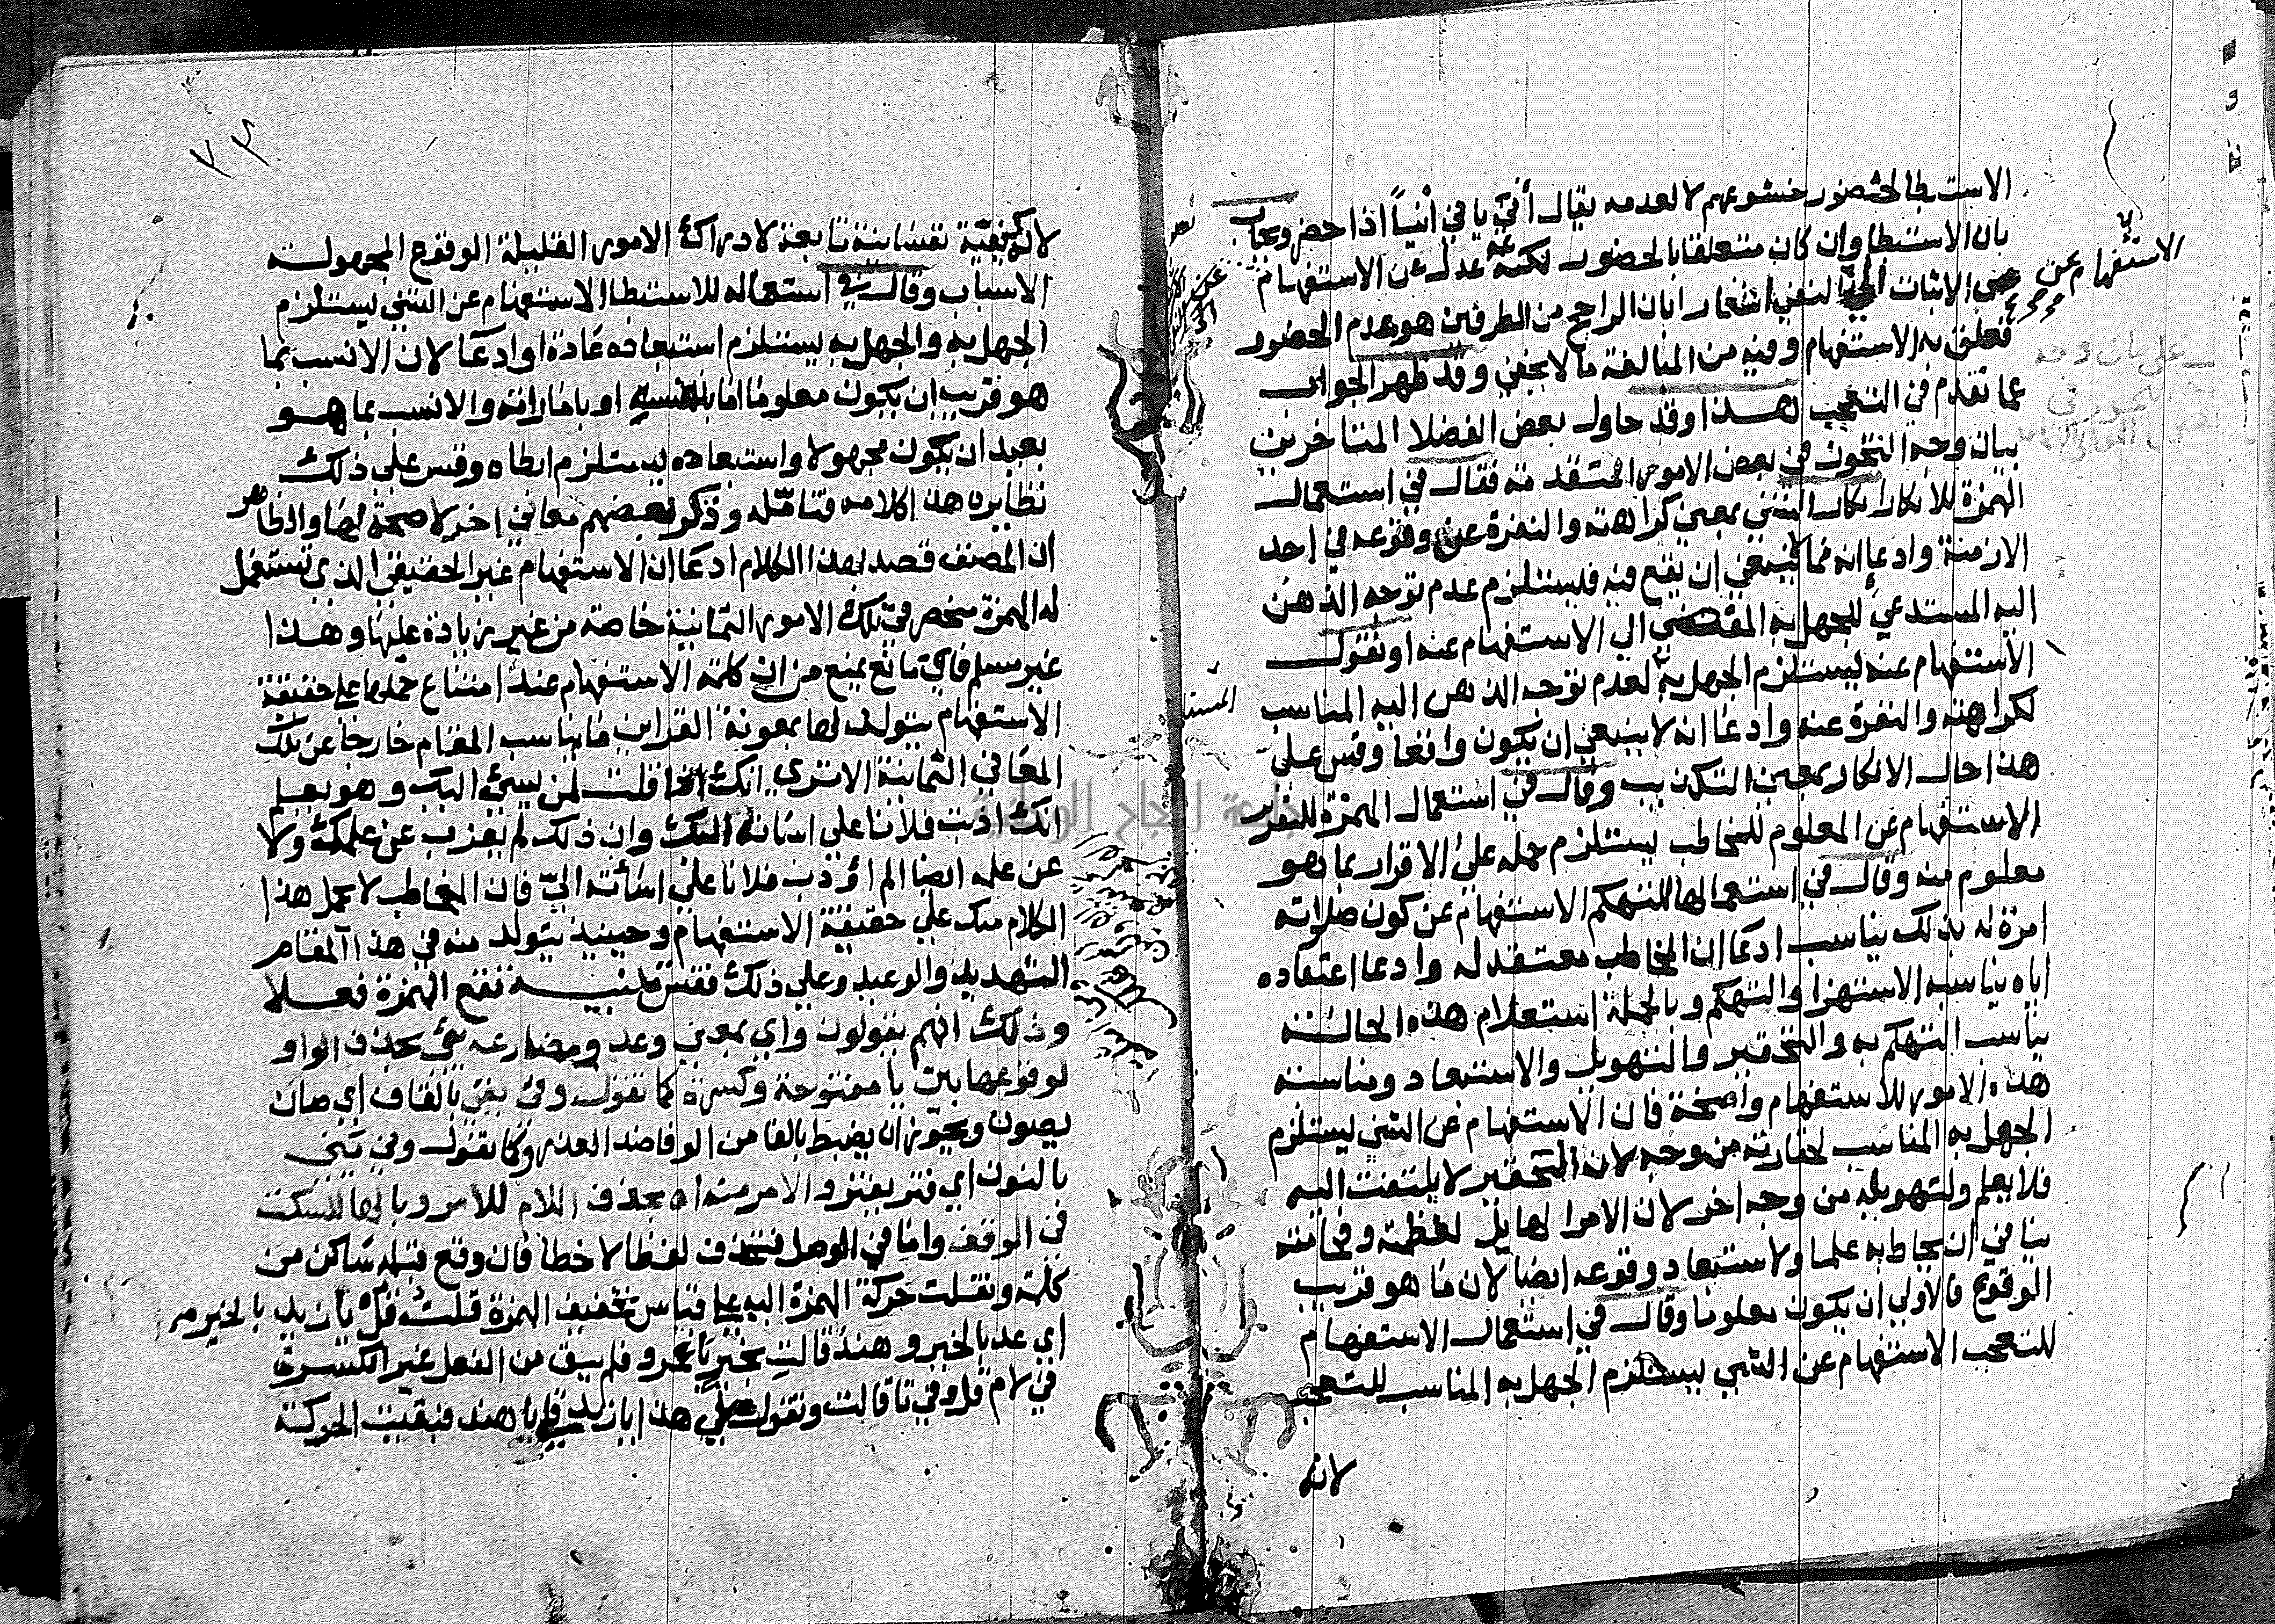 الاستبطا لحضور خشوعهم لا لعدمه يقال أني ياني أنياً اذا حضر ويجاب
بان الاستبطا وان كان متعلقا بالحضور لكنه عدل عن الاستفهام
الاستفهام عن
عن الاثبات الي النفي اشعارا بان الراجح من الطرفين هو عدم الحضور
فعلق به الاستفهام وفيه من المبالغة ما لا يخفي وقد ظهر الجواب
عما تقدم في التعجب هذا وقد حاول بعض الفضلا المتاخرين
بيان وجه التجوز في بعض الامور المتقدمة فقال في استعمال
الهمزة للانكار انكار الشي بمعني كراهته والنفرة عن وقوعه في احد
الازمنة وادعا انه مما لا ينبغي ان يقع فيه فيستلزم عدم توجه الذهن
اليه المستدعي للجهل به المقتضي الي الاستفهام عنه او نقول
الاستفهام عنه يستلزم الجهل به لعدم توجه الذهن اليه المناسب
لكراهته والنفرة عنه وادعا انه لا ينبغي ان يكون واقعا وقس علي
هذا حال الانكار بمعني التكذيب وقال في استعمال الهمزة للتقرير
الاستفهام عن المعلوم للمخاطب يستلزم حمله علي الاقرار بما هو
معلوم منه وقال في استعمالها للتهكم الاستفهام عن كون صلاته
امرة له بذلك يناسب ادعا ان المخاطب معتقد له وادعا اعتقاده
اياه يناسبه الاستهزا والتهكم وبالجملة استعلام هذه الحالة
يناسب التهكم به والتحقير والتهويل والاستبعاد ومناسبة
هذه الامور للاستفهام واضحة فان الاستفهام عن الشي يستلزم
الجهل به المناسب لحقارته من وجه لان الحقير لا يلتفت اليه
فلا يعلم ولتهويله من وجه اخر لان الامر الهايل لعظمته وفخامته
ينافي ان يحاط به علما ولاستبعاد وقوعه ايضا لان ما هو قريب
الوقوع فالاولي ان يكون معلوما وقال في استعمال الاستفهام
للتعجب الاستفهام عن الشي يستلزم الجهل به المناسب للتعجب
لانه
٧٣
لانه كيفية نفسانية تابعة لادراك الامور القليلة الوقوع المجهولة
الاسباب وقال في استعماله للاستبطا الاستفهام عن الشي يستلزم
الجهل به والجهل به يستلزم استبعاده عادة او ادعا لان الانسب بما
هو قريب ان يكون معلوما اما بنفسه او باماراته والانسب بما هو
بعيد ان يكون مجهولا واستبعاده يستلزم ابطاه وقس علي ذلك
نظايره هذا كلامه فتامله وذكر بعضهم معاني اخر لا صحة ايضا والظاهر
ان المصنف قصد بهذا الكلام ادعا ان الاستفهام غير الحقيقي الذي تستعمل
له الهمزة منحصر في تلك الامور الثمانية خاصة من غير زيادة عليها وهذا
غير مسلم فاي مانع يمنع من ان كلمة الاستفهام عند امتناع حملها علي حقيقة
الاستفهام يتولد لها بمعونة القراين ما يناسب المقام خارجا عن تلك
المعاني الثمانية الا تري انك اذا قلت لمن يسيء اليك وهو يعلم
انك ادبت فلانا علي اساته اليك وان ذلك لم يعزب عن علمك ولا
عن علمه ايضا الم اؤدب فلانا علي اسأته اليّ فان المخاطب لا يحمل هذا
الكلام منك علي حقيقة الاستفهام وحينيذ يتولد منه في هذا المقام
التهديد والوعيد وعلي ذلك فقس تنبيه تقع الهمزة فعلا
وذلك انهم يقولون واي بمعني وعد ومضارعه يئي بحذف الواو
لوقوعها بين يا مفتوحة وكسرة كما تقول وقي يقي بالقاف اي صان
يصون ويجوز ان يضبط بالفا من الوفا ضد الغدر وكما تقول وني يني
بالنون اي فتر يفتر والامر منه اه بحذف اللام للامر وبالها للسكت
في الوقف واما في الوصل فتحذف لفظا لا خطا فان وقع قبله ساكن من
كلمة ونقلت حركة الهمزة اليه علي قياس تخفيف الهمزة قلت قل يا زيد بالخير
اي عد بالخير وهند قالت بخير يا عمرو فلم يبق من الفعل غير الكسرة
في لام قل وفي تا قالت وتقول علي هذا يا زيد يا هند فبقيت الحركة